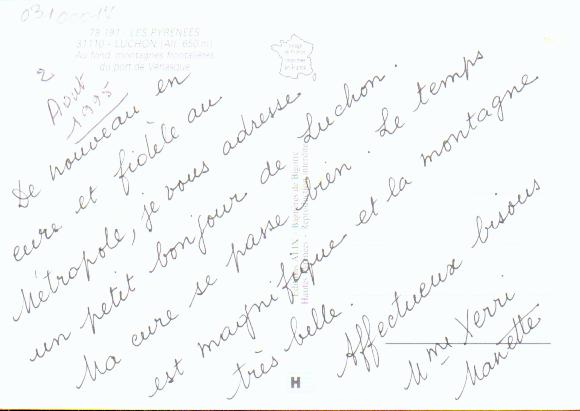 031000-14
78 191 - LES PYRENEES
31110 - LUCHON (Alt. 650 m)
Au fond, montagnes frontalières
du port de Vénasque
2
Aout
1995
De nouveau en
cure et fidèle au
Métropole, je vous adresse
un petit bonjour de Luchon.
Ma cure se passe bien. Le temps
est magnifique et la montagne
très belle.
Affectueux bisous
Mme Xerri
Manette
H